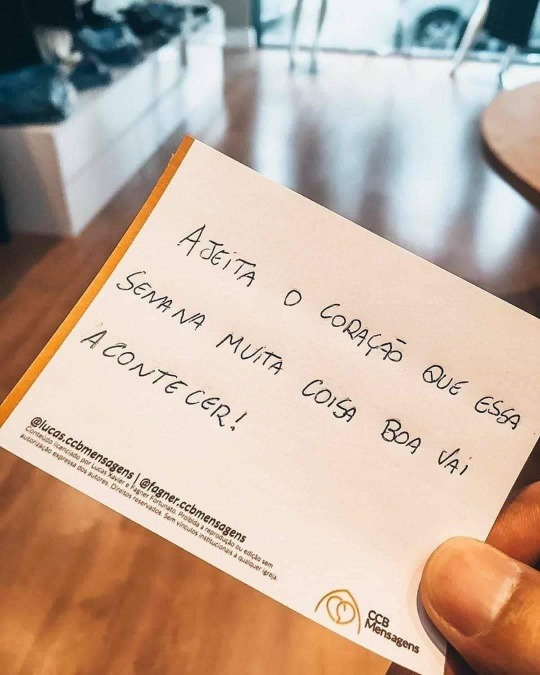 AJEITA O CORAÇÃO QUE ESSA
SEMANA MUITA COISA BOA VAI
ACONTECER!
@lucas.ccbmensagens | @fagner.ccbmensagens
Conteúdo licenciado por Lucas Xavier e Fagner Fortunato. Proibida a reprodução ou edição sem
autorização expressa dos autores. Direitos reservados. Sem vínculos institucionais a qualquer igreja.
CCB
Mensagens